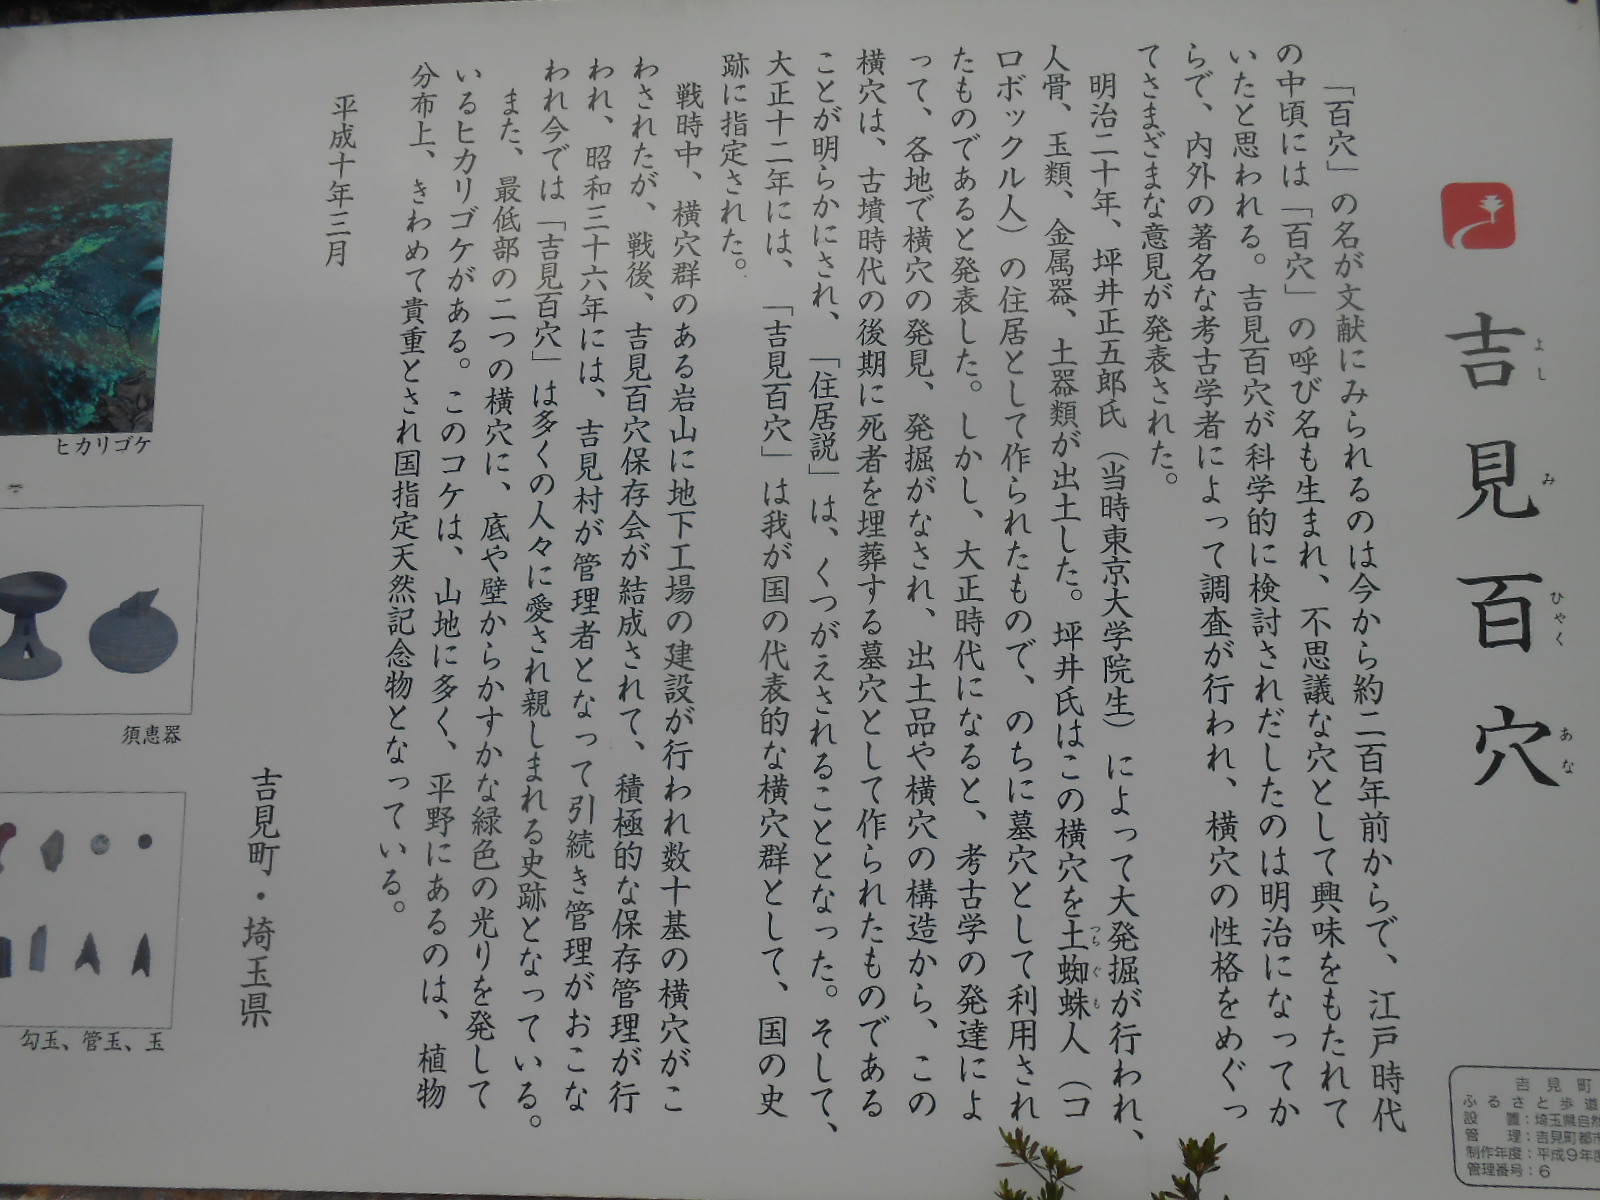 吉見百穴
よし
み
ひゃく
あな
「百穴」の名が文献にみられるのは今から約二百年前からで、江戸時代
の中頃には「百穴」の呼び名も生まれ、不思議な穴として興味をもたれて
いたと思われる。吉見百穴が科学的に検討されだしたのは明治になってか
らで、内外の著名な考古学者によって調査が行われ、横穴の性格をめぐっ
てさまざまな意見が発表された。
明治二十年、坪井正五郎氏（当時東京大学院生）によって大発掘が行われ、
人骨、玉類、金属器、土器類が出土した。坪井氏はこの横穴を土蜘蛛人（コ
つちぐも
ロボックル人）の住居として作られたもので、のちに墓穴として利用され
たものであると発表した。しかし、大正時代になると、考古学の発達によ
って、各地で横穴の発見、発掘がなされ、出土品や横穴の構造から、この
横穴は、古墳時代の後期に死者を埋葬する墓穴として作られたものである
ことが明らかにされ、「住居説」は、くつがえされることとなった。そして、
大正十二年には、「吉見百穴」は我が国の代表的な横穴群として、国の史
跡に指定された。
戦時中、横穴群のある岩山に地下工場の建設が行われ数十基の横穴がこ
わされたが、戦後、吉見百穴保存会が結成されて、積極的な保存管理が行
われ、昭和三十六年には、吉見村が管理者となって引続き管理がおこな
われ今では「吉見百穴」は多くの人々に愛され親しまれる史跡となっている。
また、最低部の二つの横穴に、底や壁からかすかな緑色の光りを発して
いるヒカリゴケがある。このコケは、山地に多く、平野にあるのは、植物
分布上、きわめて貴重とされ国指定天然記念物となっている。
平成十年三月
吉見町・埼玉県
ヒカリゴケ
須恵器
勾玉、管玉、玉
吉見町
ふるさと歩道
設置：埼玉県自然
管理：吉見町都市
制作年度：平成9年度
管理番号：6